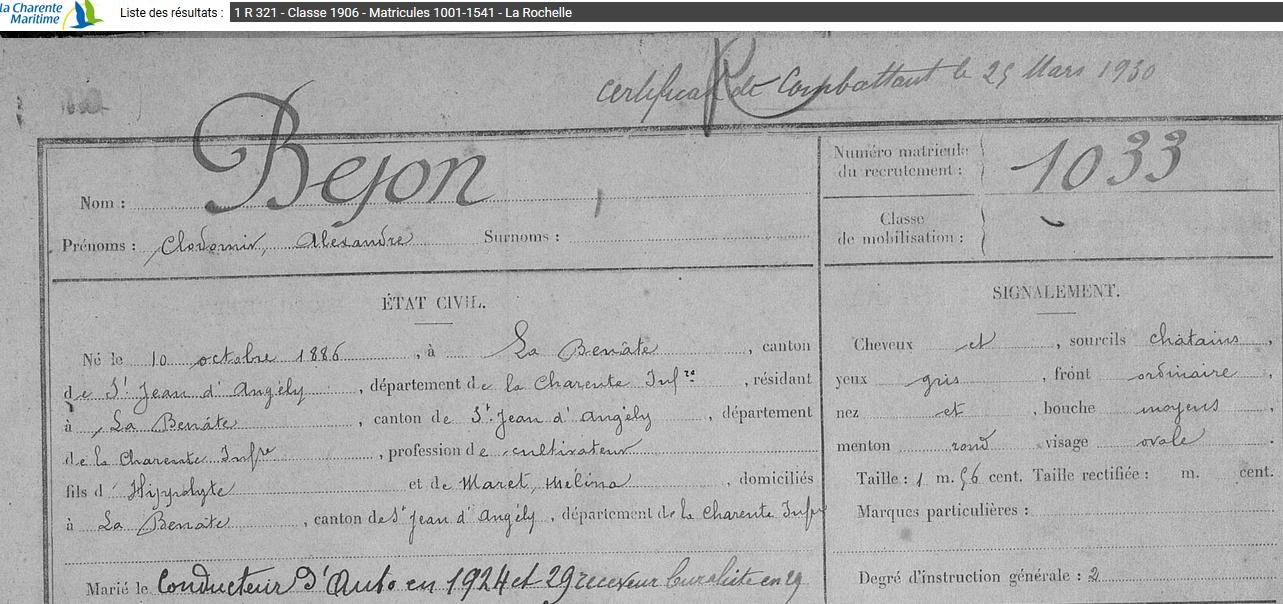 la Charente
Maritime
Liste des résultats : 1 R 321 - Classe 1906 - Matricules 1001-1541 - La Rochelle
Certificat de Combattant le 25 Mars 1930
Nom : Bejon
Numéro matricule du recrutement : 1033
Prénoms : Clodomir, Alexandre Surnoms :
Classe de mobilisation :
ÉTAT CIVIL.
Né le 10 octobre 1886, à La Benâte, canton
de St Jean d'Angély, département de la Charente Infre, résidant
à La Benâte, canton de St Jean d'Angély, département
de la Charente Infre, profession de cultivateur
fils d'Hippolyte et de Maret, Mélina, domiciliés
à La Benâte, canton de St Jean d'Angély, département de la Charente Infre
Marié le Conducteur d'Auto en 1924 et 29 receveur buraliste en 29
SIGNALEMENT.
Cheveux et, sourcils châtains,
yeux gris, front ordinaire,
nez et, bouche moyens,
menton rond, visage ovale.
Taille : 1 m. 56 cent. Taille rectifiée : m. cent.
Marques particulières :
Degré d'instruction générale : 2